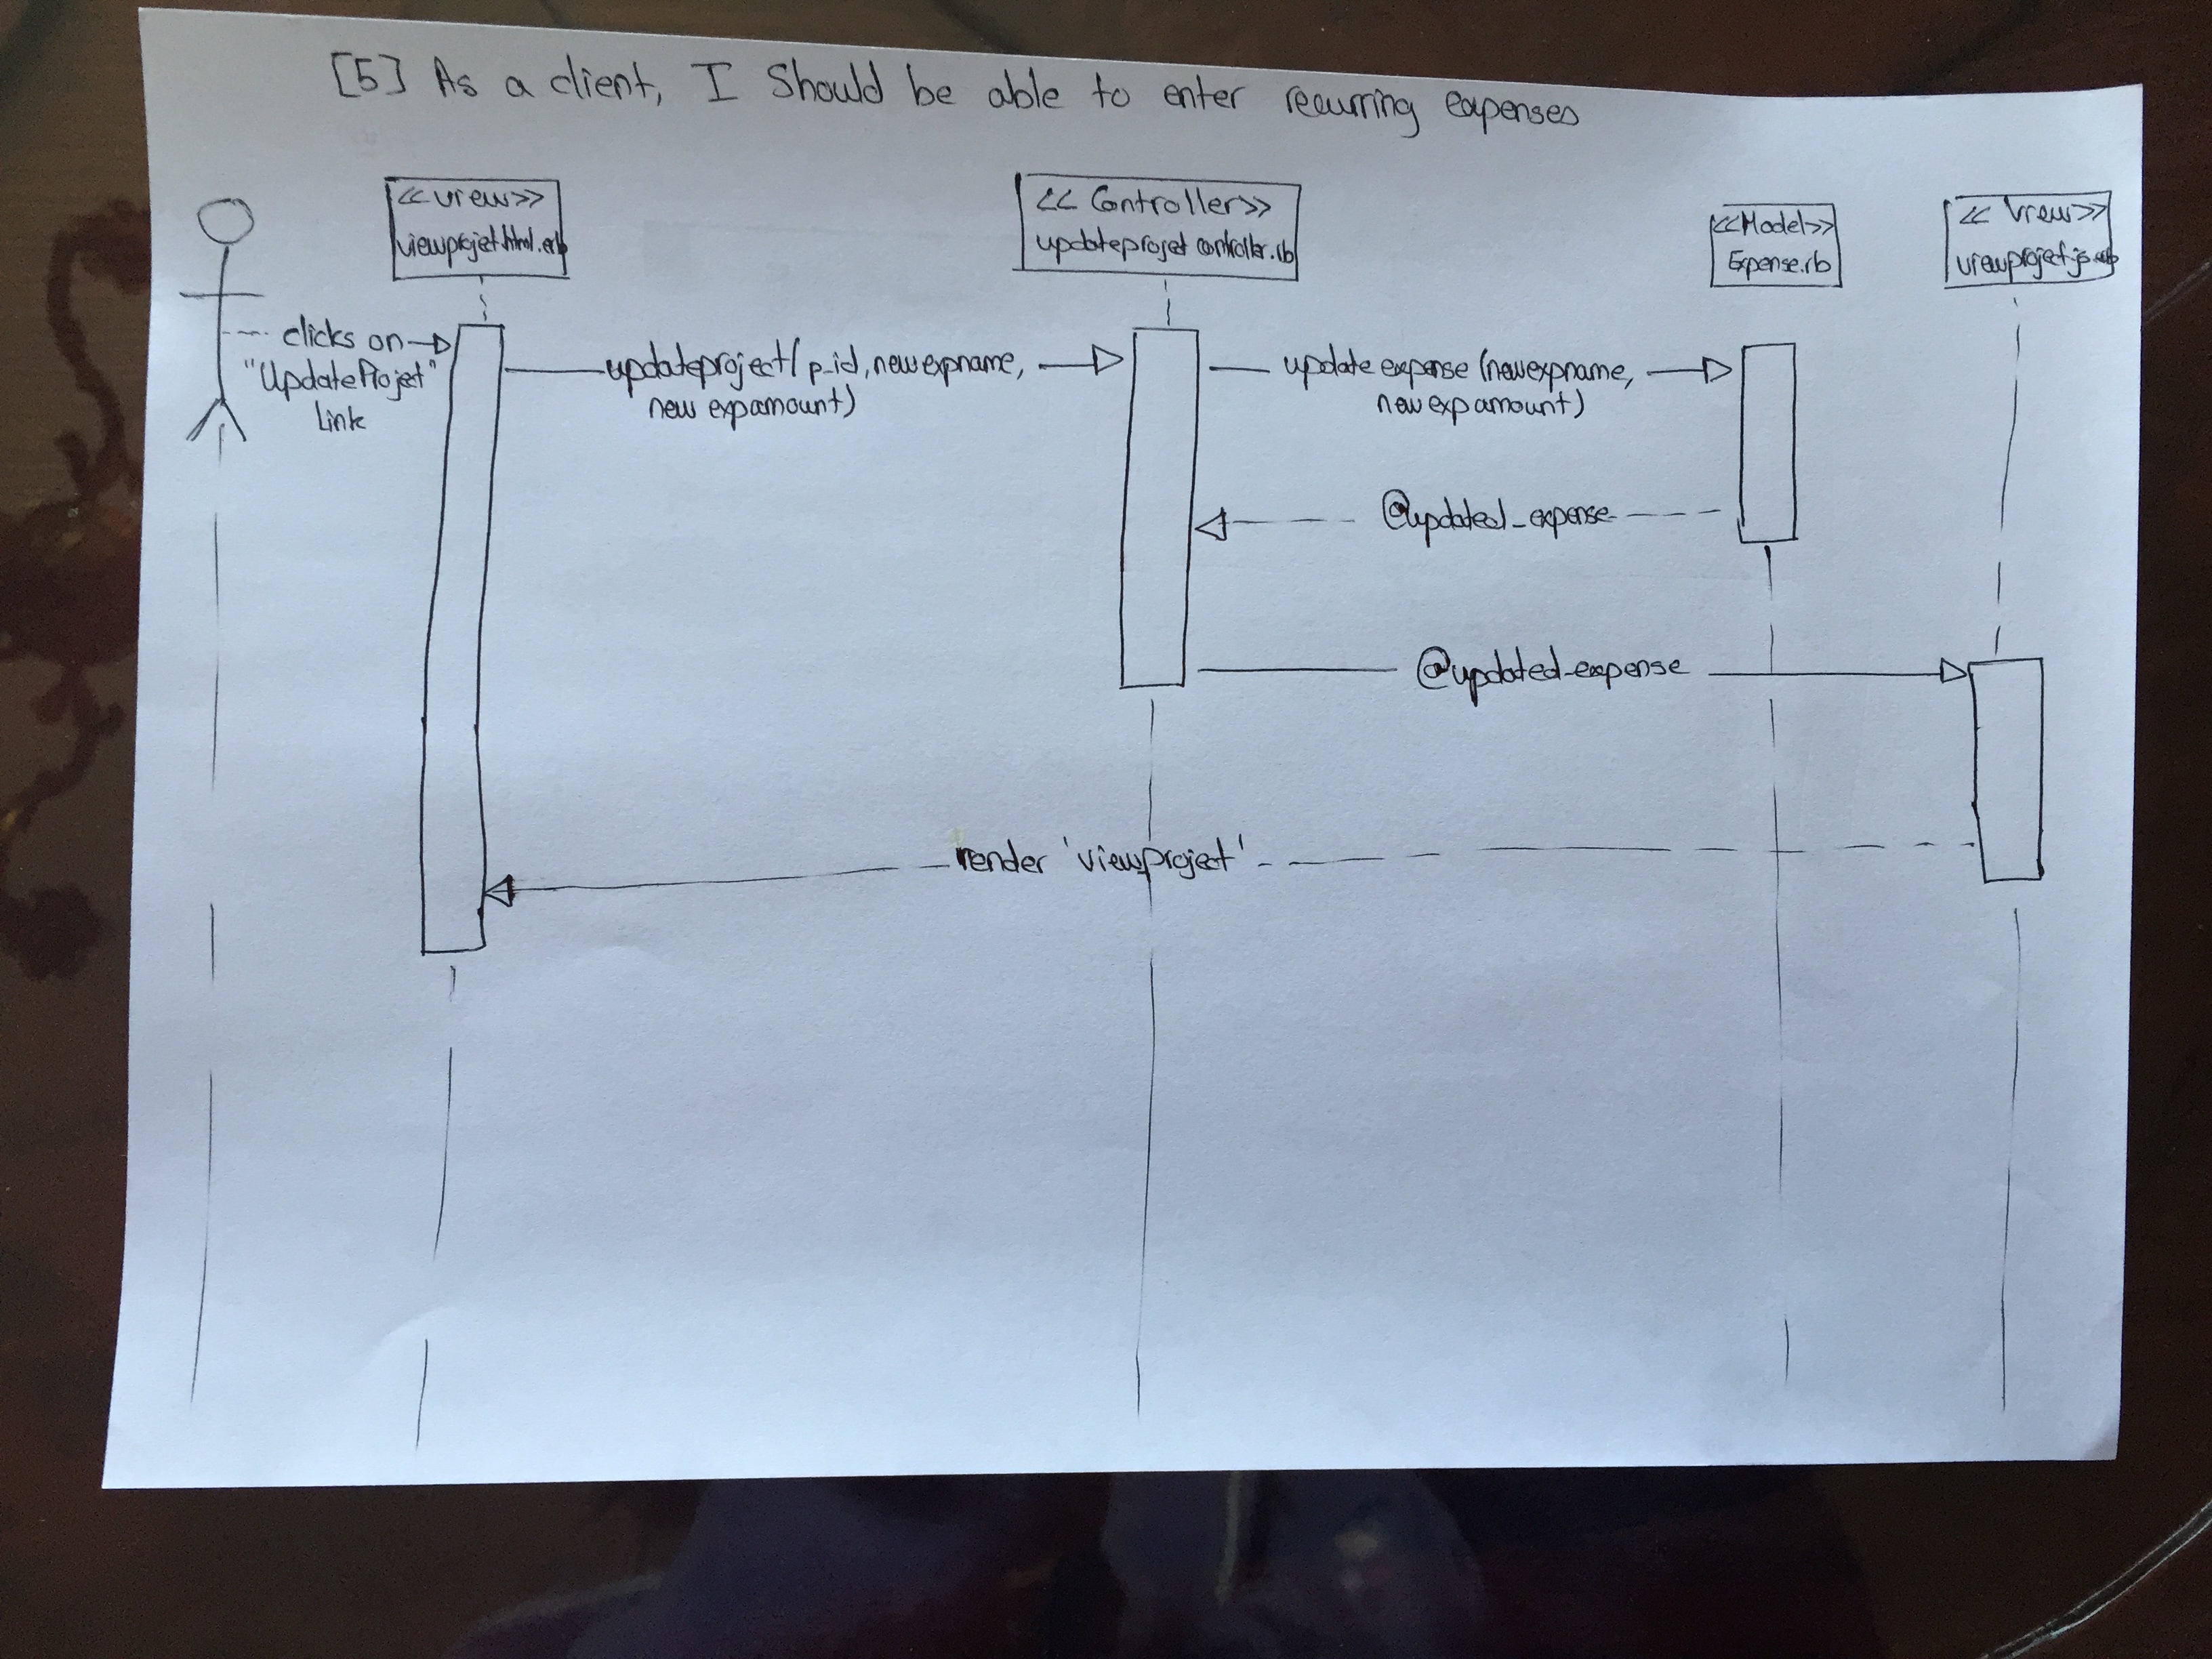 [5] As a client, I Should be able to enter recurring expenses
<<view>>
viewprojet.html.erb
<< Controller>>
updateprojet controller.rb
<<Model>>
Expense.rb
<< View>>
viewproject.js.erb
clicks on
"UpdateProjet"
link
updateproject( p_id, newexpname,
new expamount)
update expense (newexpname,
new expamount)
@updated_expense
@updated_expense
render 'viewproject'